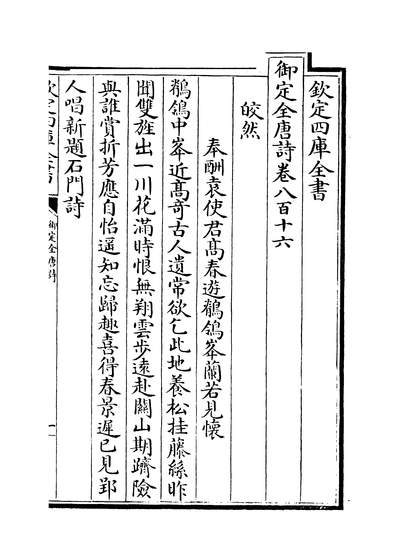 欽定四庫全書
御定全唐詩卷八百十六
皎然
奉酬袁使君高春遊鶺鴒峯蘭若見懷
鶺鴒中峯近高奇古人遺常欲乞此地養松挂藤絲昨
聞雙旌出一川花滿時恨無翔雲步遠赴關山期躋險
與誰賞折芳應自怡遥知忘歸趣喜得春景遲已見郢
人唱新題石門詩
御定全唐詩
一